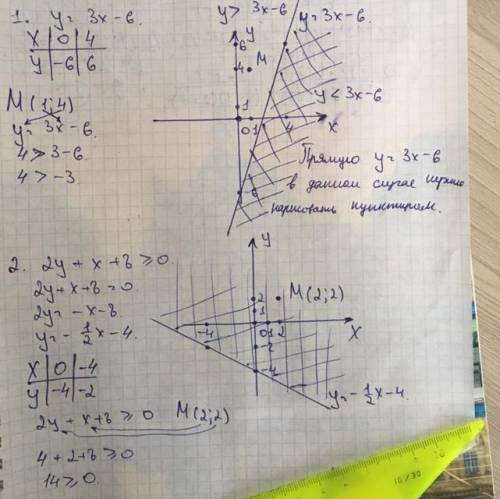 1. y = 3x-6.
x | 0 | 4
y | -6 | 6
M(1;4)
y = 3x-6.
4 > 3-6.
4 > -3.
y > 3x-6
y = 3x-6.
y
6
4
M
1
0 1
4
x
y < 3x-6
Прямую y = 3x-6
в данном случае нужно
нарисовать пунктиром.
2. 2y + x + 8 ≥ 0.
2y + x + 8 = 0
2y = -x-8.
y = -1/2x-4.
x | 0 | -4
y | -4 | -2
2y + x + 8 ≥ 0 M(2;2)
4 + 2 + 8 ≥ 0
14 ≥ 0.
y
2
1
M(2;2)
-4
0 1 2
x
-2
-4
y = -1/2x-4.